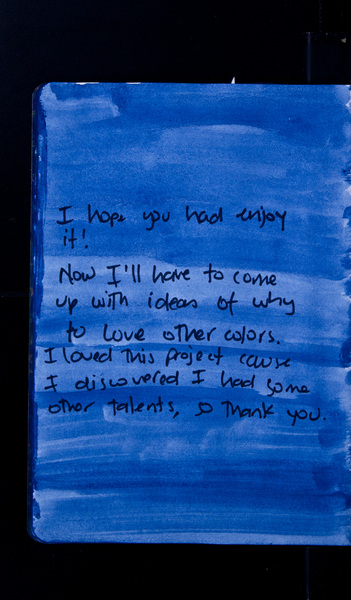 I hope you had enjoy
it!
Now I'll have to come
up with ideas of why
to love other colors.
I loved This project cause
I discovered I had some
other talents, so Thank you.